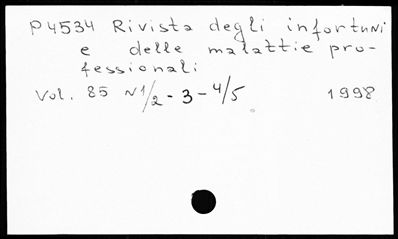 P4534 Rivista degli infortuni
e delle malattie pro-
fessionali
Vol. 85 N 1/2 - 3 - 4/5 1998